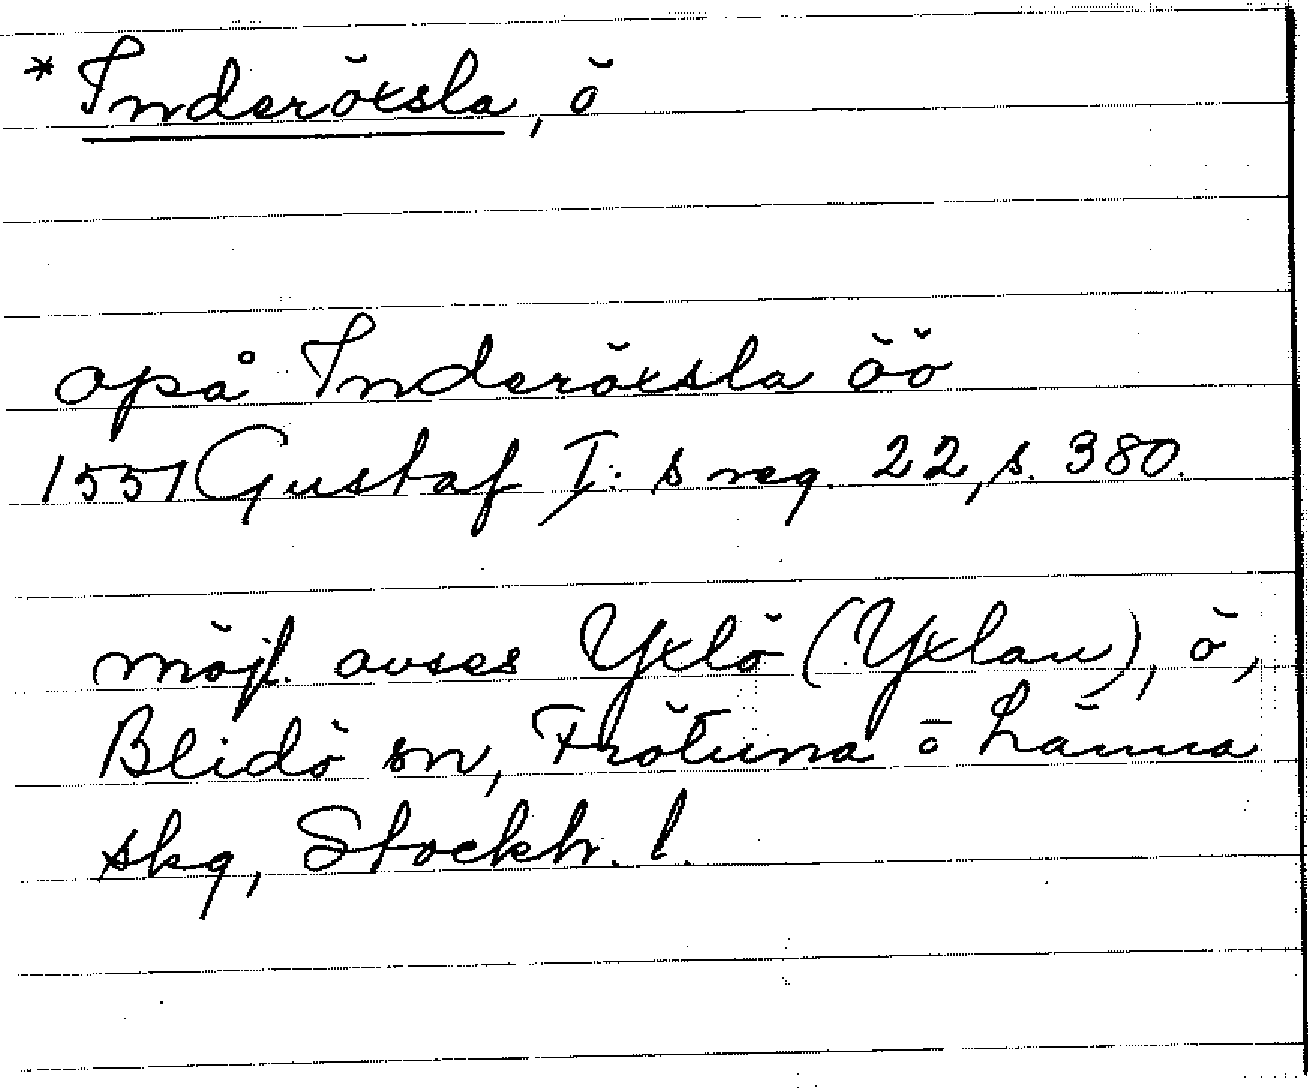 * Inderöxsla, ö
opå Inderöxsla öö
1551 Gustaf I:s reg. 22, s. 380.
möjl. avses Yxlö (Yxlan), ö,
Blidö sn, Frötuna o Länna
skg, Stockh. l.